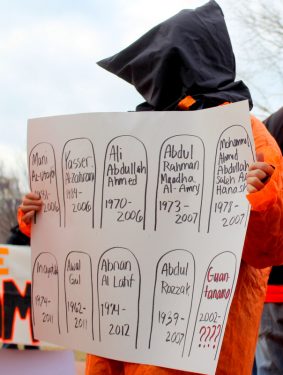 Mani
Al-Utaybi
2006
Yasser
Al-Zahrani
1984-
2006
Ali
Abdullah
Ahmed
1970-
2006
Abdul
Rahman
Maadha
Al-Amry
1973-
2007
Mohammad
Ahmed
Abdullah
Saleh Al-
Hanashi
1978-
2009
Inayatullah
1974-
2011
Awal
Gul
1962-
2011
Adnan
Al Latif
1974-
2012
Abdul
Razzak
1939-
2007
Guan-
tanamo
2002-
????